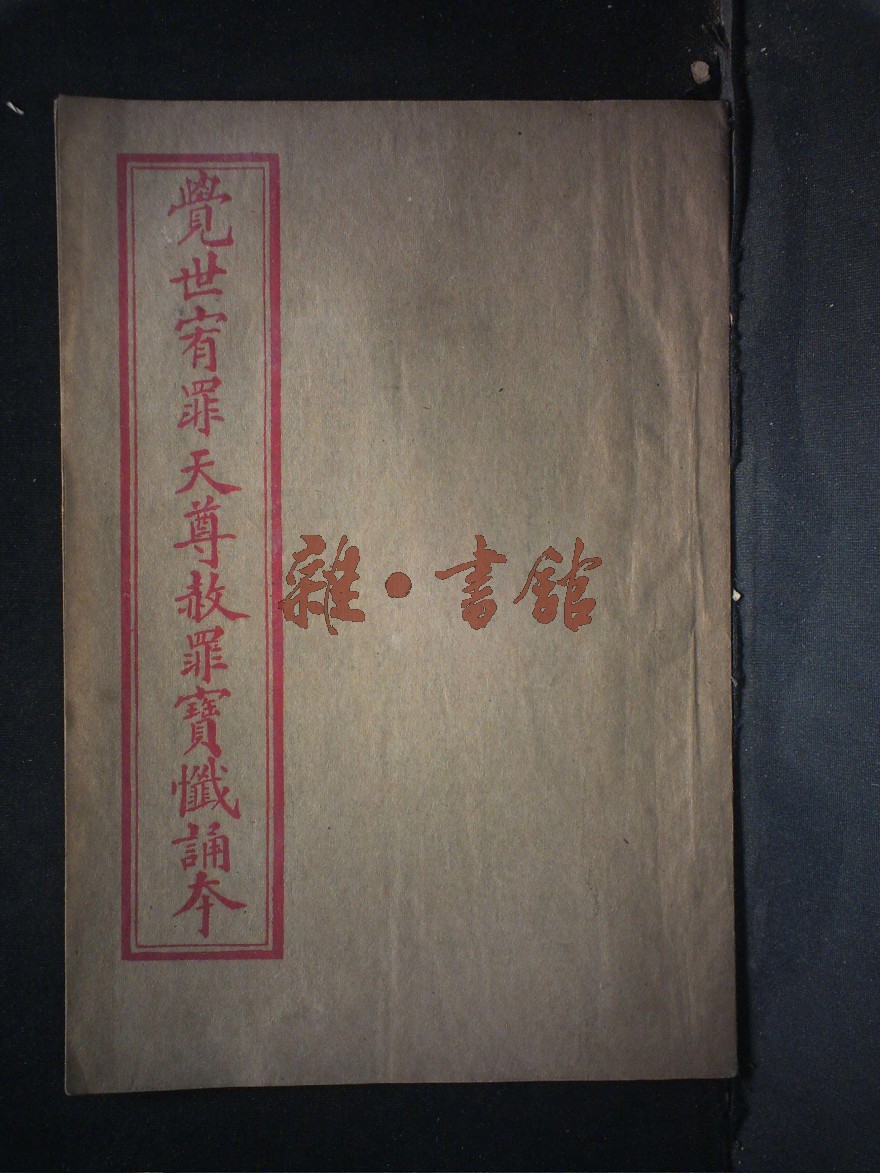 覺世宥罪天尊赦罪寶懺誦本
雜·書館